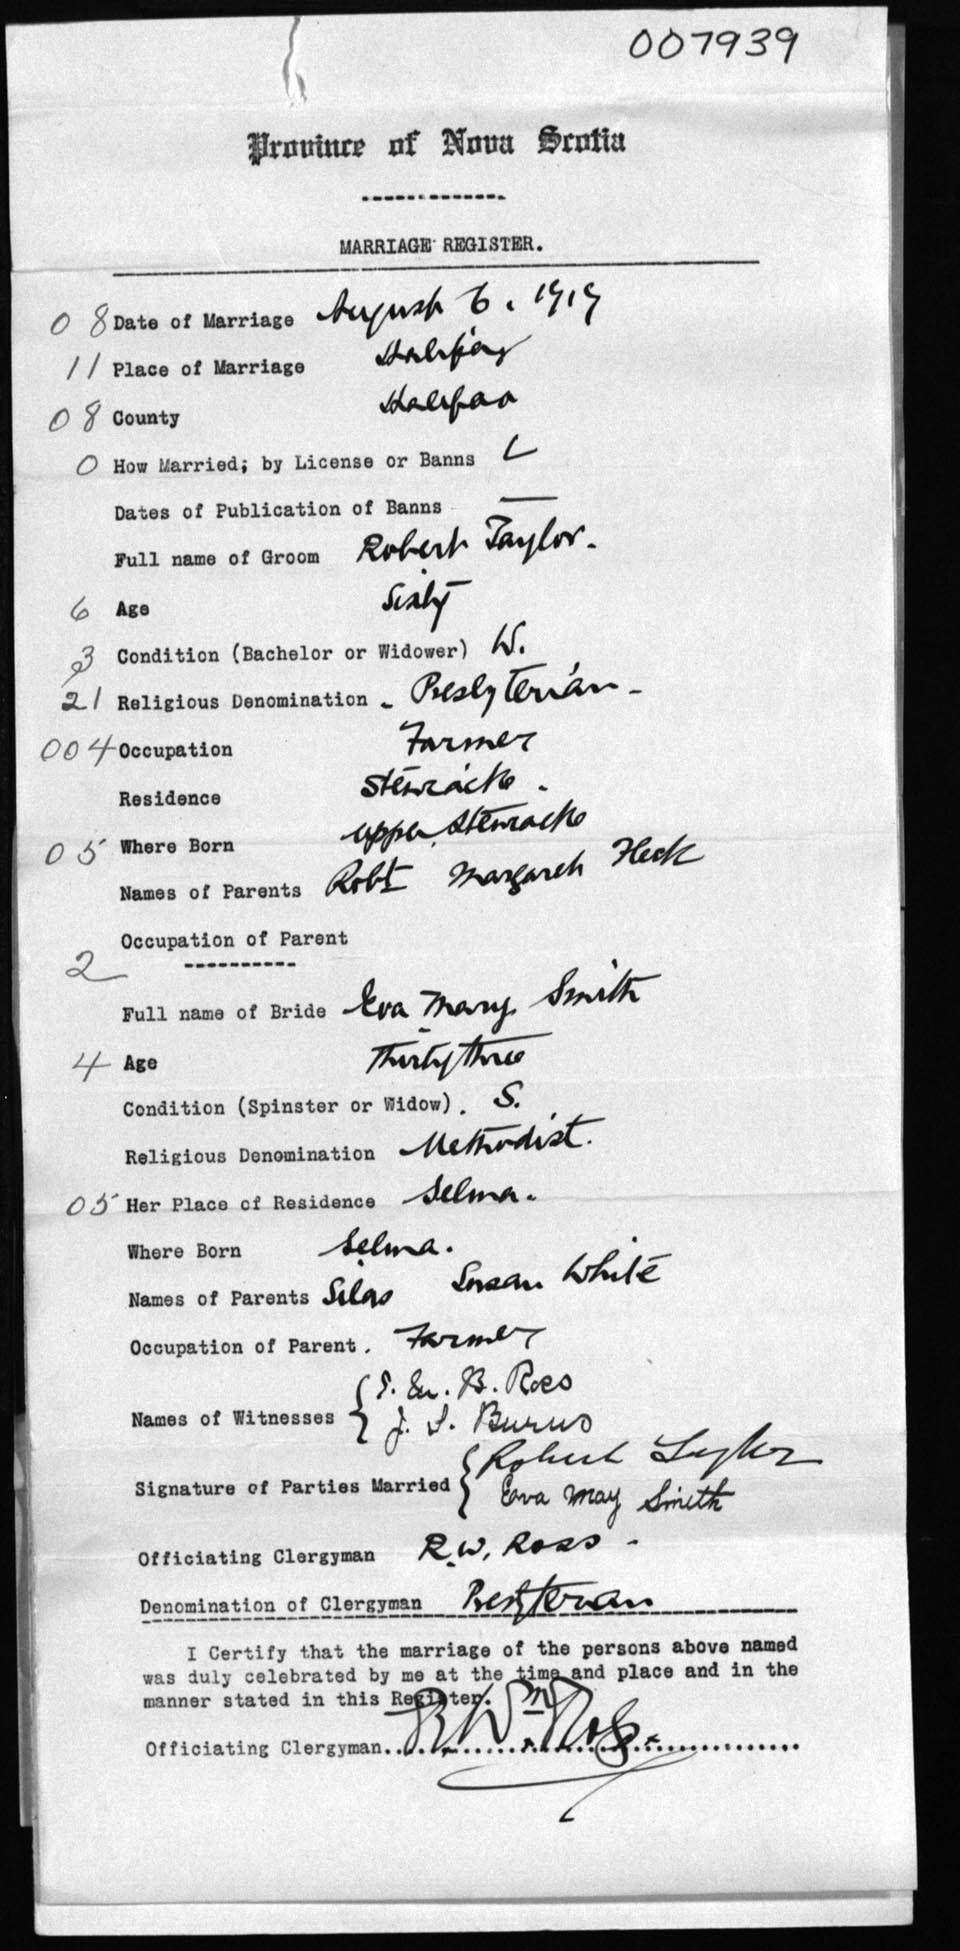 007939
Province of Nova Scotia
MARRIAGE REGISTER.
08 Date of Marriage August 6. 1919
11 Place of Marriage Halifax
08 County Halifax
0 How Married; by License or Banns L
Dates of Publication of Banns —
Full name of Groom Robert Taylor.
6 Age Sixty
3 Condition (Bachelor or Widower) W.
21 Religious Denomination - Presbyterian -
004 Occupation Farmer
Residence Stewiacke.
05 Where Born Upper Stewiacke
Names of Parents Robt Margaret Fleck
Occupation of Parent
2 ----------
Full name of Bride Eva Mary Smith
4 Age Thirty three
Condition (Spinster or Widow). S.
Religious Denomination Methodist.
05 Her Place of Residence Selma.
Where Born Selma.
Names of Parents Silas Susan White
Occupation of Parent. Farmer
B. Ross
Names of Witnesses J. S. Burns
Robert Taylor
Signature of Parties Married Eva May Smith
Officiating Clergyman R. W. Ross -
Denomination of Clergyman Presbyterian
I Certify that the marriage of the persons above named
was duly celebrated by me at the time and place and in the
manner stated in this Register.
Officiating Clergyman. R. Wm Ross.